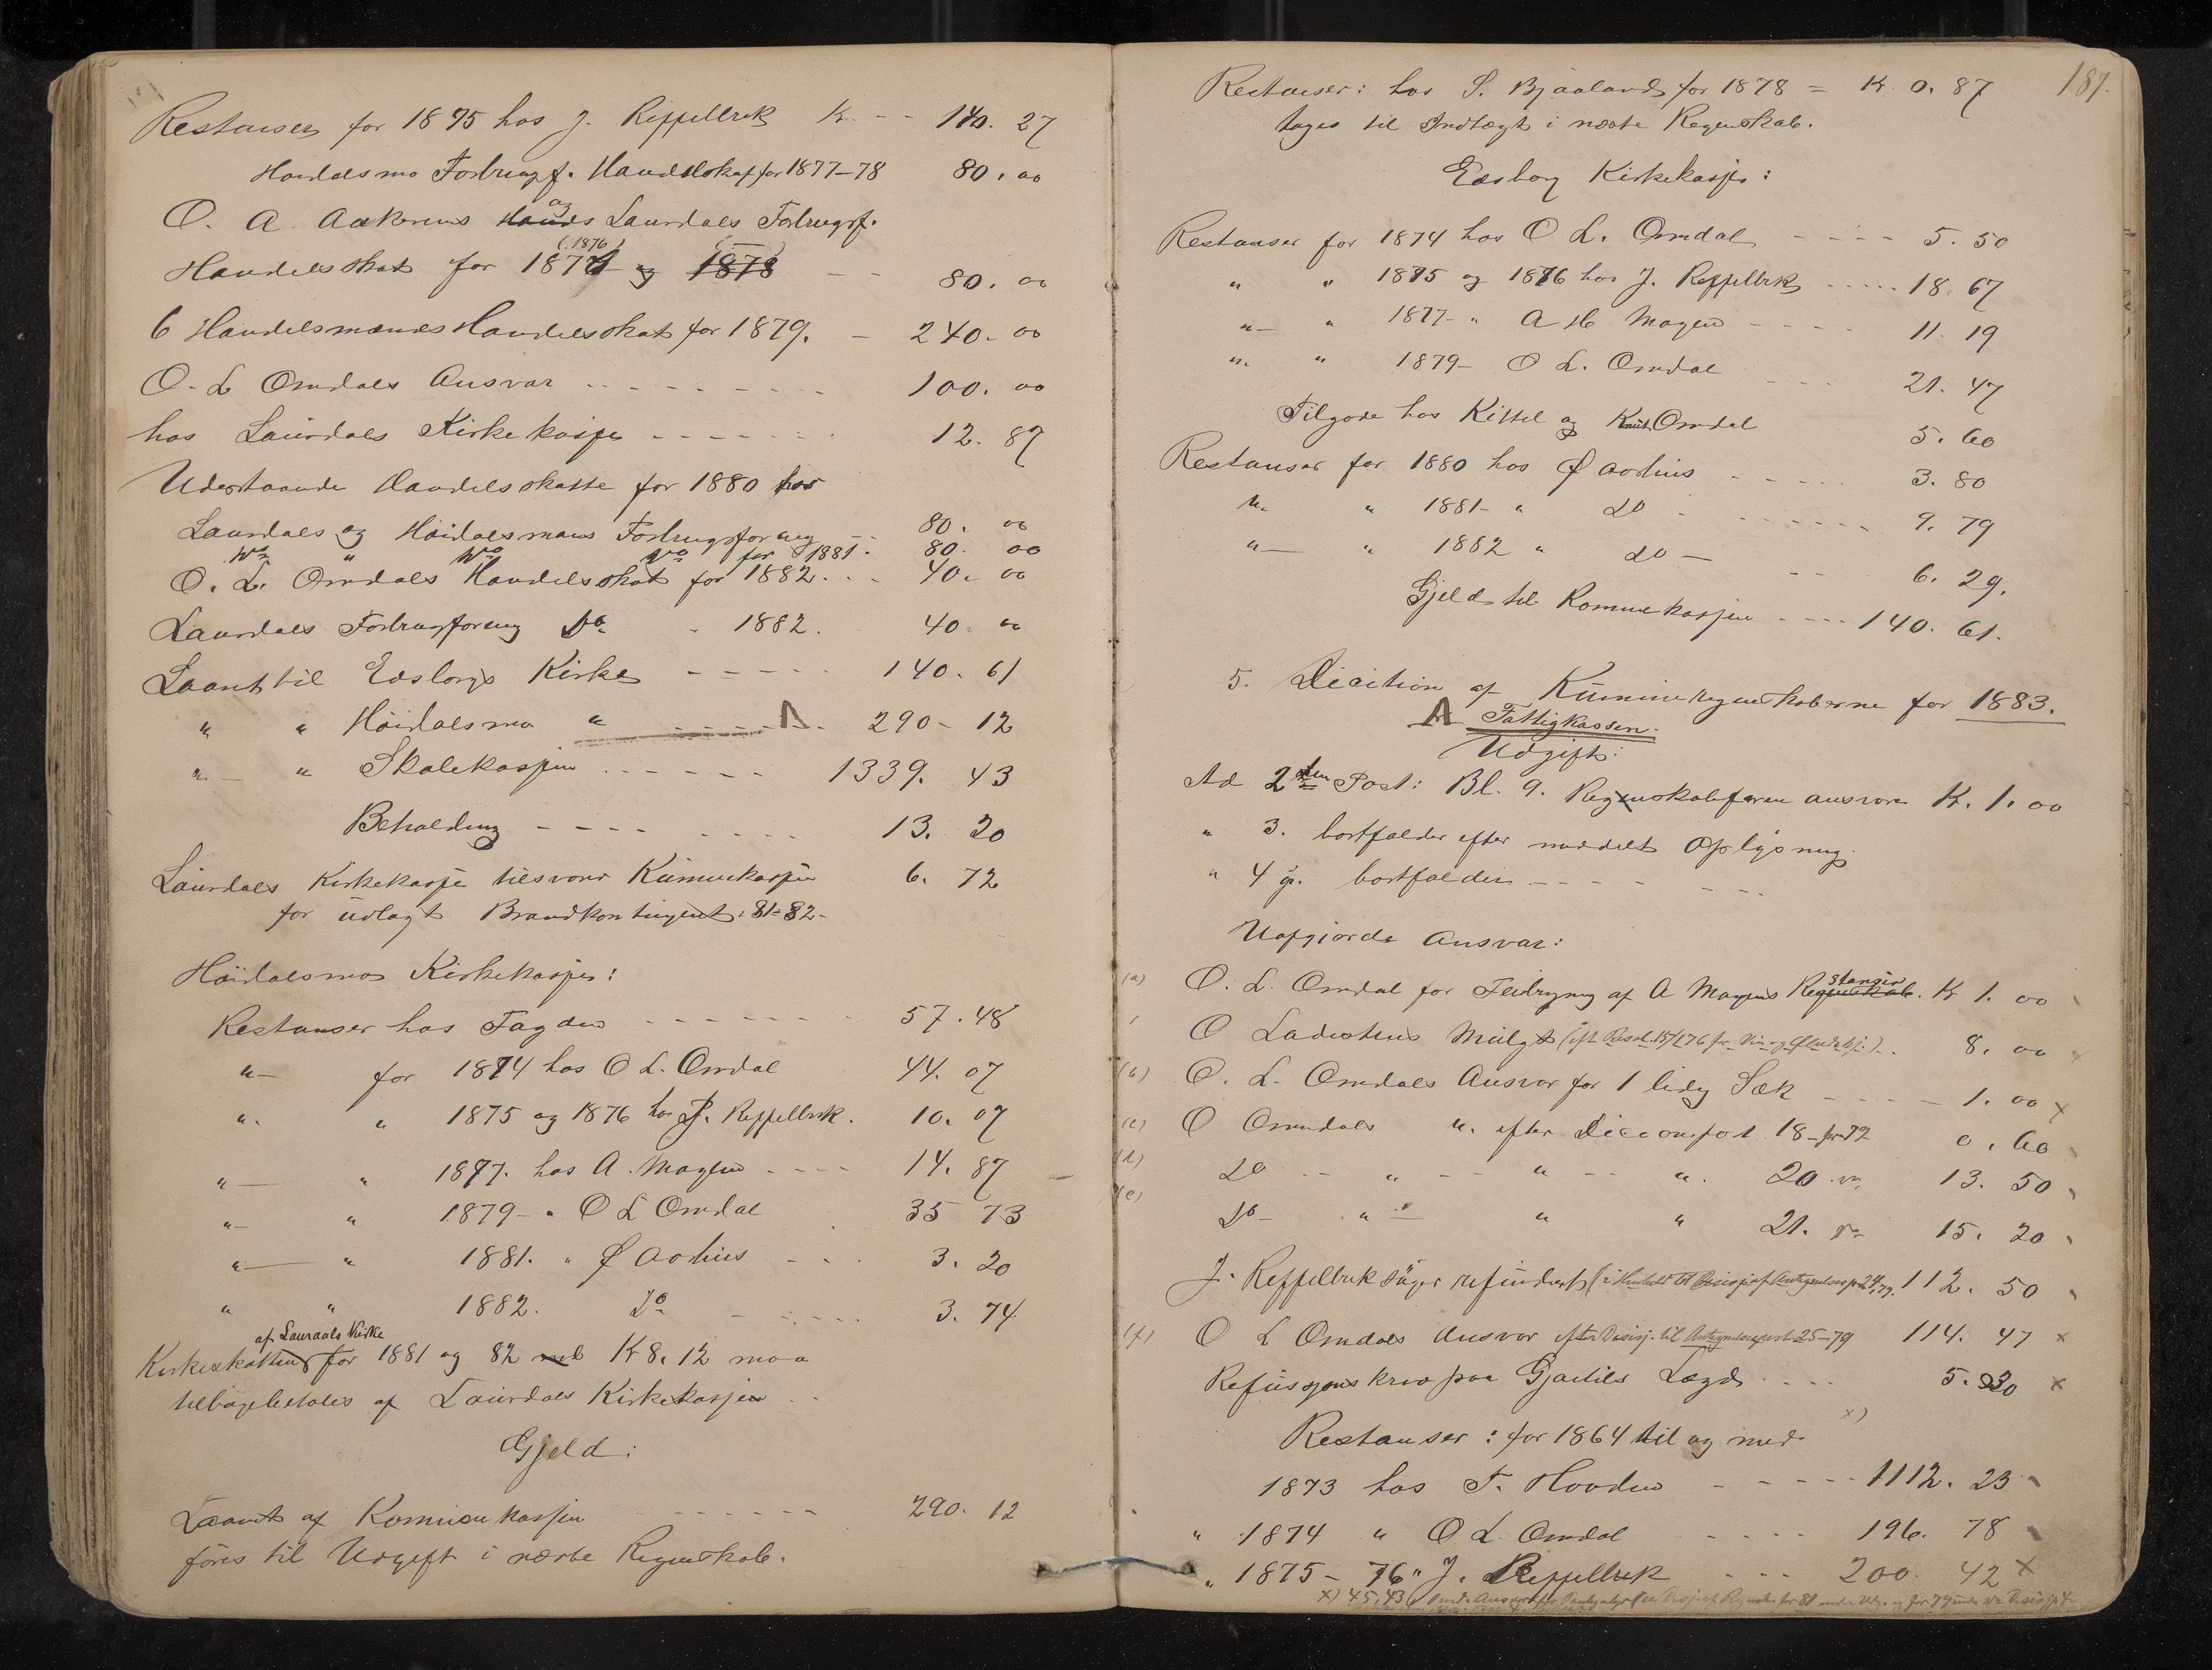 Restanser for 1875 hos J. Reppelbrek Kr. - - 140. 27
Høidalsmo Forbrugsf. Handelskat for 1877-78 80. 00
O. A. Aakerens og Laurdals Forbrugsf.
Handelsskat for 1877 (1876) og 1878 - - 80. 00
6 Handelsmænds Handelsskat for 1879. - 240. 00
O. L Omdals Ansvar - - - - 100. 00
hos Laurdals Kirkekasse - - - - 12. 87
Udestaaende Handelsskatte for 1880 hos
Laurdals og Høidalsmos Forbrugsforening - - 80. 00
Do " Do Do for 1881. 80. 00
O. L. Omdals Handelsskat for 1882. - - 40. 00
Laurdals Forbrugforening Do " 1882. 40. 00
Laant til Edsborgs Kirke - - - - 140. 61
" " Høidalsmo " - - - - 290 - 12
" - " Skolekassen - - - - 1339. 43
Beholdning - - - - 13. 20
Laurdals Kirkekasse tilsvarer Kumunekassen 6. 72
for udlagt Brandkontingent. 81-82-
Høidalsmos Kirkekasse:
Restanser hos Fogden - - - - 57. 48
" - for 1874 hos O L. Omdal 44. 07
" - " 1875 og 1876 hos J. Reppelbrek. 10. 07
" - " 1877. hos A. Mogen - - - - 14. 87
" - " 1879 - " O L Omdal 35 73
" - " 1881. " Ø Aarhus - - - 3. 20
" " 1882. Do - - - 3. 74
af Laurdals Kirke
Kirkeskatten for 1881 og 82 med Kr 8. 12 maa
tilbagebetales af Laurdals Kirkekasse
Gjeld:
Laant af Komunekassen - - - - 290. 12
føres til Udgift i næste Regnskab.
187.
Restanser: hos S. Bjaaland for 1878 = Kr. 0. 87
tages til Indtægt i næste Regnskab.
Edsborg Kirkekasse:
Restanser for 1874 hos O L. Omdal - - - - 5. 50
" " 1875 og 1876 hos J. Reppelbrek - - - - 18. 67
" - " 1877 - " A H Mogen - - - - 11. 19
" " 1879 - O L. Omdal - - - 21. 47
Tilgode hos Kittel og Knut Omdal 5. 60
Restanser for 1880 hos Ø Aarhus - - - - 3. 80
" " 1881 - " Do - - - - 9. 79
" - " 1882 " Do - - - 6. 29.
Gjeld til Komunekassen - - - - 140. 61.
5. Decition af Kumuneregnskaberne for 1883.
A Fattigkassen.
Udgift:
Ad 2den Post: Bl. 9. Regnskabsføreren ansvarer Kr. 1. 00
" 3. bortfalder efter meddelt Oplysning.
" 4 bortfalder - - - -
Uafgjorde Ansvar:
(a) O. L. Omdal for Inddrivning af A Mogens Restanser. Kr 1. 00
O Ladestens Mulgt 8. 00
(b) O. L. Omdals Ansvar for 1 ledig Sæk - - - - 1. 00 x
(c) O Omdals " efter Decionspost 18 - for 72 0. 60
(d) Do - - " - - " - " 20 13. 50
(e) Do - " - " " 21. Do 15. 20
J. Reppelbrek søges refunderet (i Henhold til Desisj. af Antegnelsesp. 24, 79. 112. 50
(f) O L Omdals Ansvar efter Desisj. til Antegnelsespost 25-79 114. 47 x
Refusjons krav paa Gjærtils Lægd - - - 5. 30 x
Restanser: for 1864 til og med x)
1873 hos T. Hovden - - - - 1112. 23
" 1874 " O L. Omdal - - - - 196. 78
" 1875 - 76 " J. Reppelbrek - - - 200. 42 x
x) 45,43